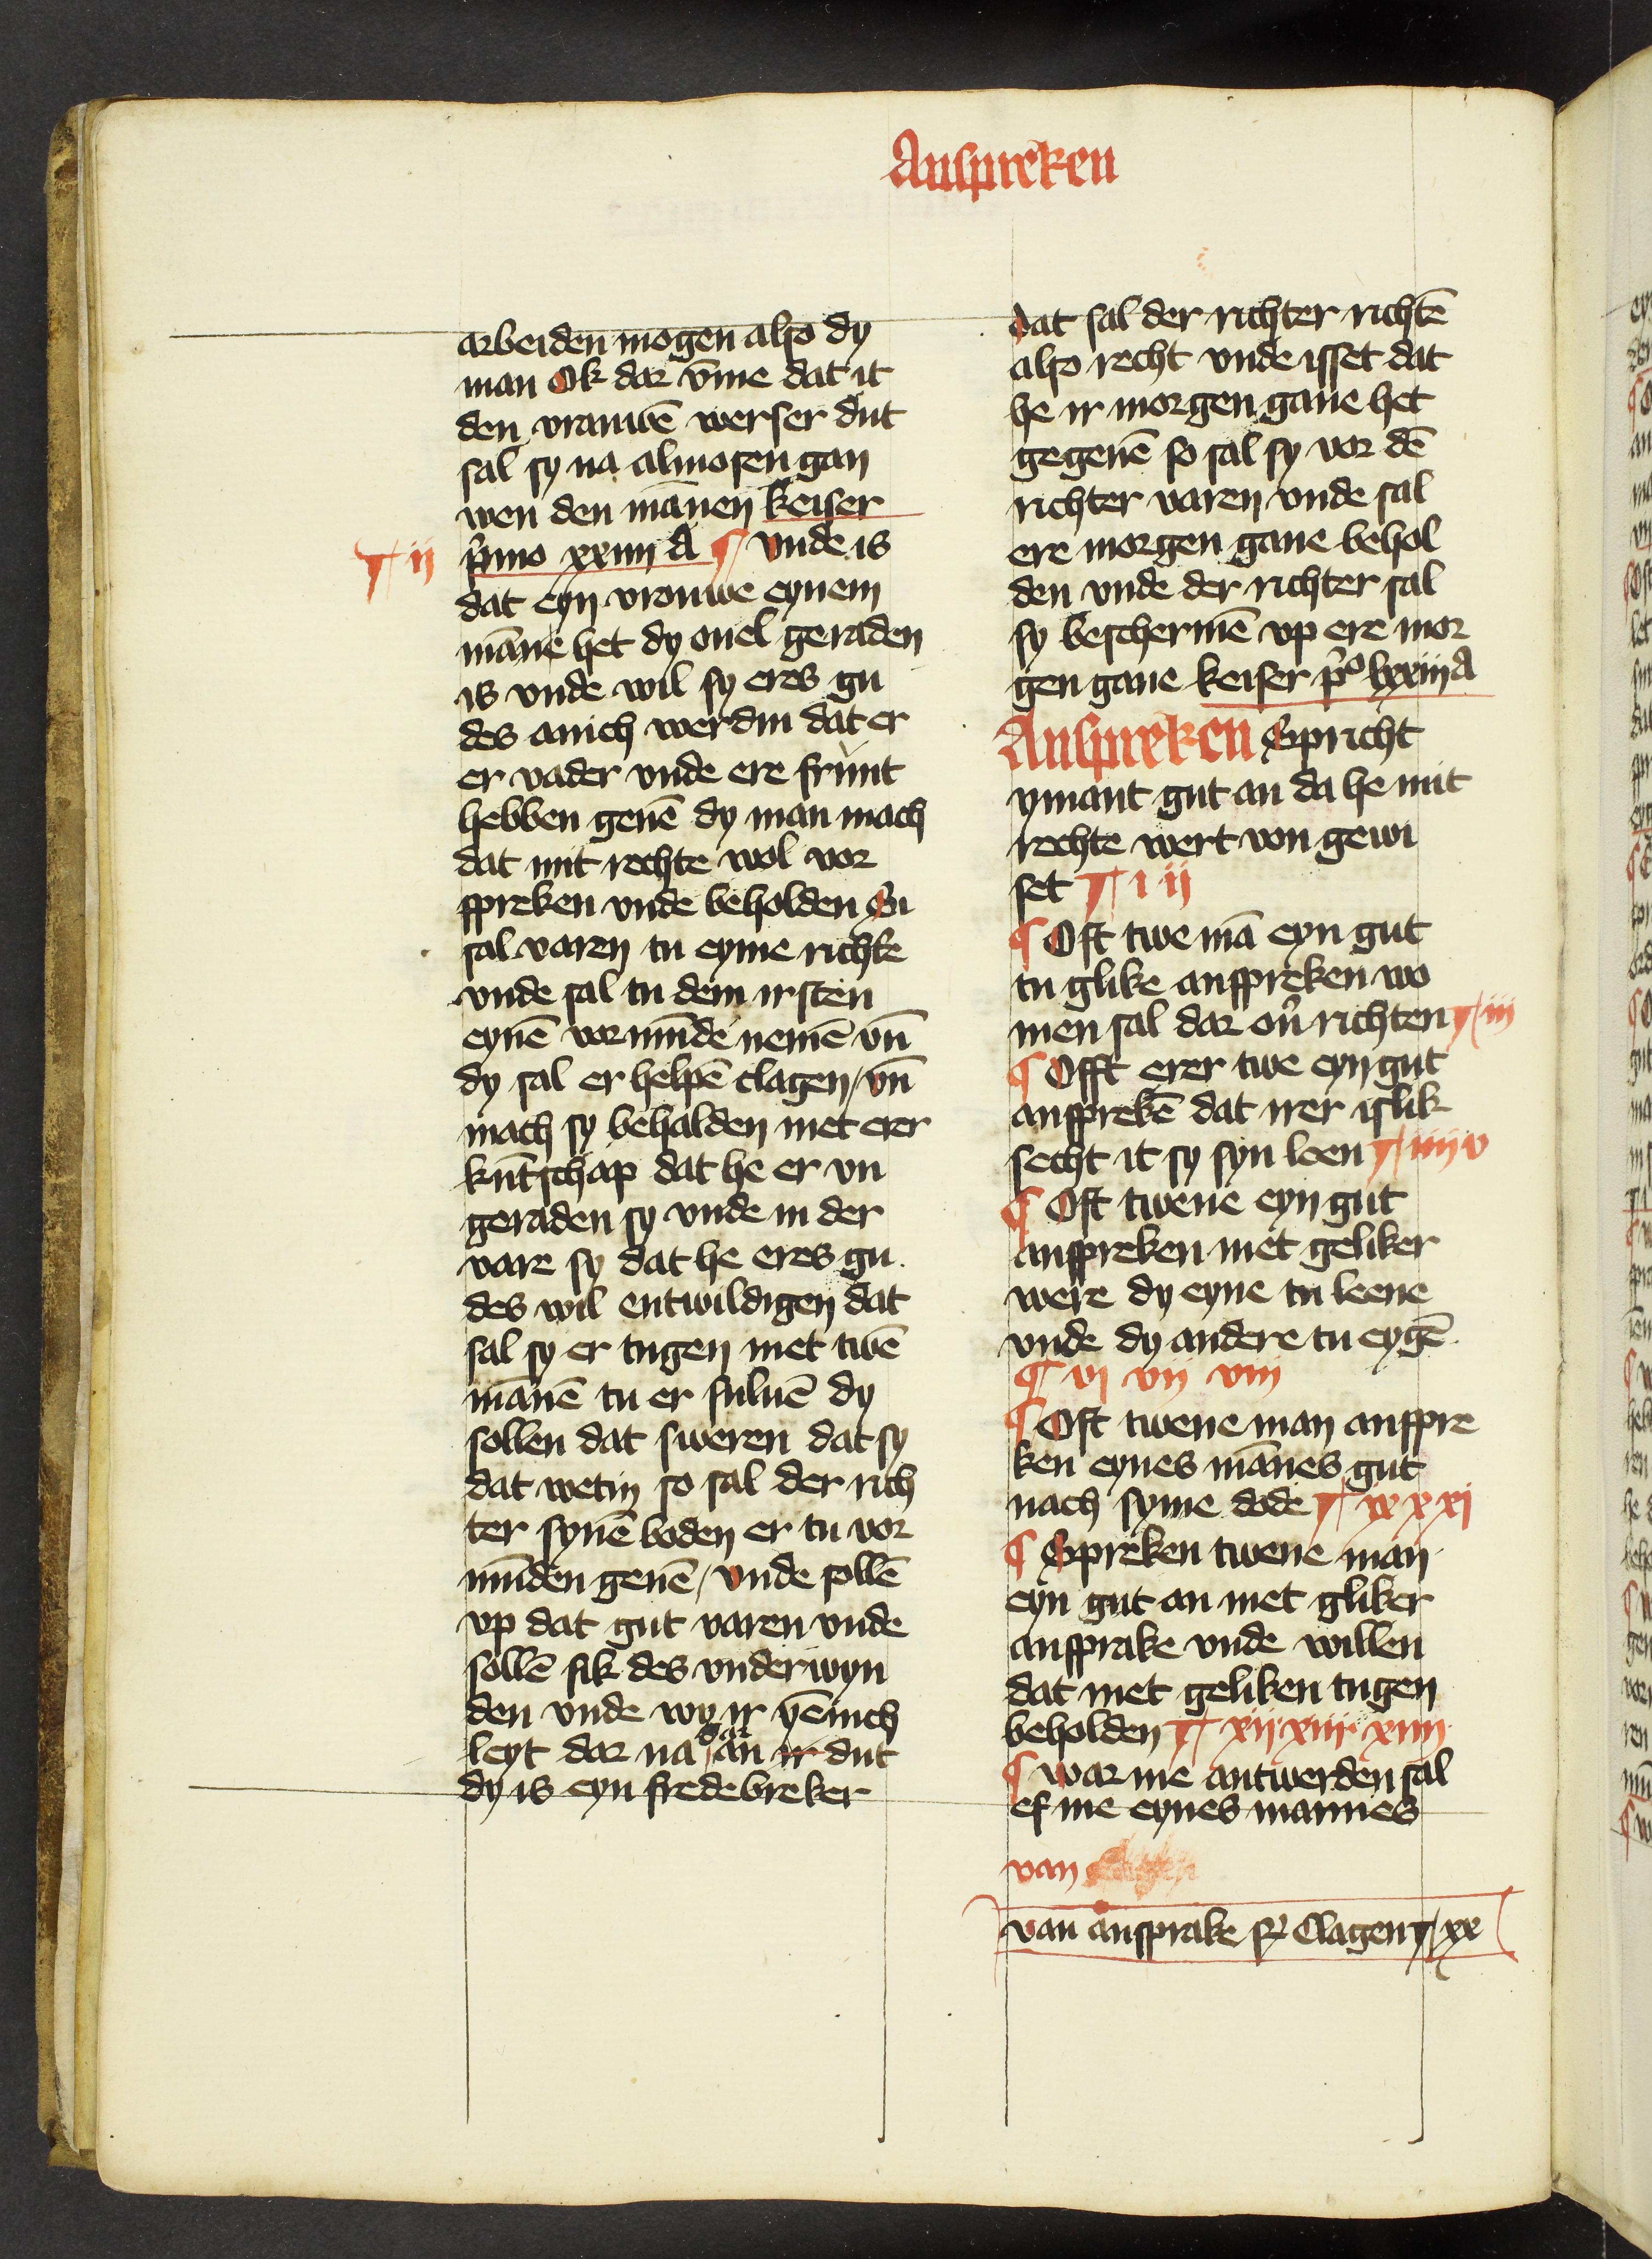 Anspreken
arbeiden mogen also dy
man Ok dar vm̄e dat it
den vrauwē werser dut
sal sy na almosen gan
wen den mānen keiser
¶ ij
p̄mo xxiiij A ¶ vnde is
dat eyn vrouwe eynem
māne het dy ouel geraden
is vnde wil sy eres gu
des anich werdin dat er
er vader vnde ere frunt
hebben geuē dy man mach
dat mit rechte wol vor
spreken vnde beholden Si
sal varen tu eyme richte
vnde sal tu dem irsten
eynē vormūde nemē vn̄
dy sal er helpē clagen / vn̄
mach sy behalden met erer
kūtschap dat he er vn
geraden sy vnde in der
vare sy dat he eres gu
des wil entwildigen dat
sal sy er tugen met twē
mānē tu er suluē dy
sollen dat sweren dat sy
dat wetin so sal der rich
ter synē boden er tu vor
mūden geuē / vnde sollē
vp dat gut varen vnde
sollē sik des vnderwyn
den vnde wy ir yēmch
leyt dar na dar an ir dut
dy is eyn fredebreker
dat sal der richter richtē
also recht vnde isset dat
he ir morgen gaue het
gegeuē so sal sy vor dē
richter varen vnde sal
ere morgen gaue behol
den vnde der richter sal
sy beschermē vp ere mor
gen gaue keiser p̄o lxxiij A
Anspreken Spricht
ymant gut an da he mit
rechte wert von gewi
set ¶ i ij
¶ Oft twe mā eyn gut
tu glike anspreken wo
men sal dar ou̅ richten ¶ iij
¶ Offt erer twe eyn gut
ansprekē dat irer islik
secht it sy syn leen ¶ iiij v
¶ Oft twene eyn gut
anspreken met geliker
were dy eyne tu leene
vnde dy andere tu eygē
¶ vj vij viij
¶ Oft twene man anspre
ken eynes mānes gut
nach syme dode ¶ ix x xi
¶ Spreken twene man
eyn gut an met gliker
ansprake vnde willen
dat met geliken tugen
beholden ¶ xij xiij xiiij
¶ war me antwerden sal
ef me eynes mannes
van
van ansprake Clagen ¶ xx